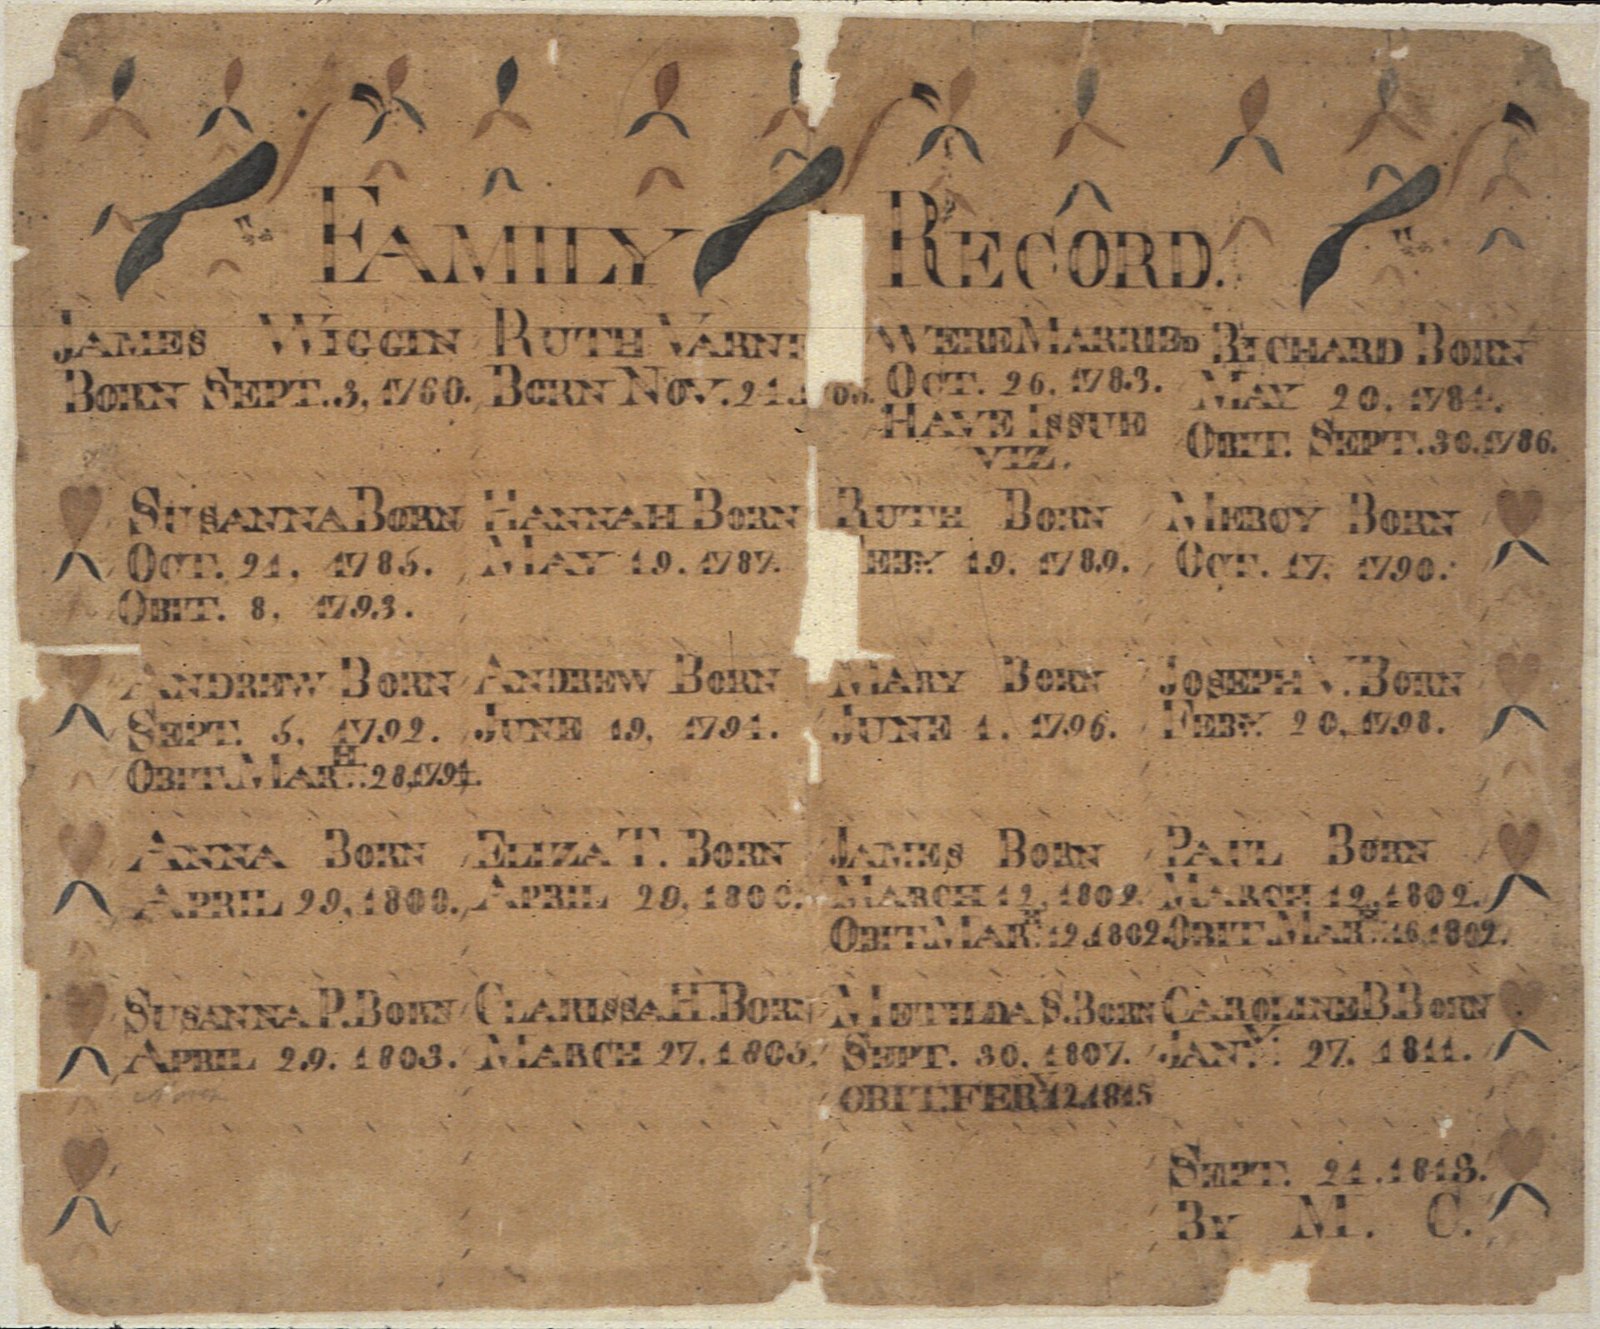 FAMILY RECORD.
JAMES WIGGIN
BORN SEPT. 3, 1760.
RUTH VARN
BORN NOV. 21
WERE MARRIED
OCT. 26, 1783.
HAVE ISSUE
VIZ.
RICHARD BORN
MAY 20, 1784.
OBIT. SEPT. 30, 1786.
SUSANNA BORN
OCT. 21, 1785.
OBIT. 8, 1793.
HANNAH BORN
MAY 19, 1787.
RUTH BORN
FEBY 19, 1789.
MERCY BORN
OCT. 17, 1790.
ANDREW BORN
SEPT. 5, 1792.
OBIT. MARH. 28, 1794.
ANDREW BORN
JUNE 19, 1794.
MARY BORN
JUNE 1, 1796.
JOSEPH V. BORN
FEBY 20, 1798.
ANNA BORN
APRIL 29, 1800.
ELIZA T. BORN
APRIL 29, 1800.
JAMES BORN
MARCH 12, 1802.
OBIT. MARH. 12, 1802.
PAUL BORN
MARCH 12, 1802.
OBIT. MARH. 16, 1802.
SUSANNA P. BORN
APRIL 29, 1803.
CLARISSA H. BORN
MARCH 27, 1805.
METILDA S. BORN
SEPT. 30, 1807.
OBIT. FEBY 12, 1815
CAROLINE B. BORN
JANY. 27, 1811.
SEPT. 21, 1818.
BY M. C.